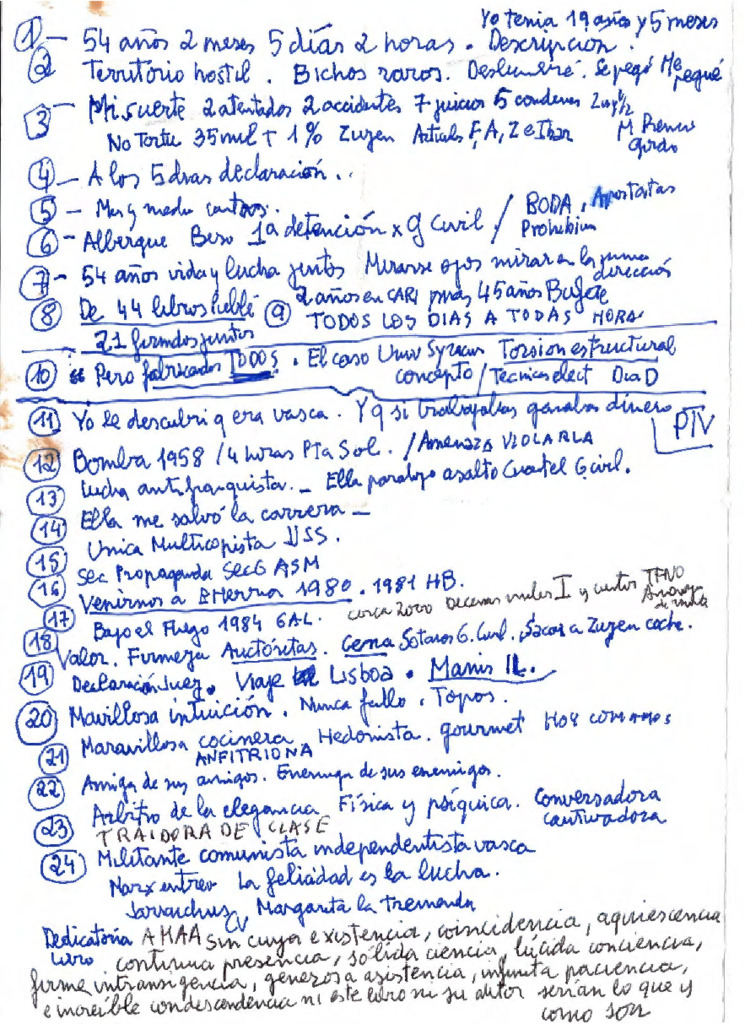 Yo tenia 19 años y 5 meses
1- 54 años 2 meses 5 días 2 horas. Descripción.
2 Territorio hostil. Bichos raros. Deslumbré. Se pegó Me pegué
3- Mi suerte 2 atentados 2 accidentes 7 juicios 5 condenas
No Tortu 35 mil + 1% Zuzen F, A, Z e Ibar
M Gordo
4- A los 5 días declaración..
5-
6- Albergue Beso 1ª detención x G Civil / BODA, Apostatas
Prohibium
7- 54 años vida y lucha juntos Mirarse ojos mirar en la misma dirección
8 De 44 libros 9 2 años en CARI y más 45 años Bufete
21 firmados juntos TODOS LOS DIAS A TODAS HORAS
10 Pero fabricados TODOS. El caso Univ Torsion estructural
concepto / Tecnicas elect Dia D
11 Yo le descubrí q era vasca. Y q si trabajabas ganabas dinero
PTV
12 Bomba 1958 / 4 horas Pta Sol. / Amenaza VIOLARLA
13 Lucha antifranquista. - Ella paralizo asalto Cuartel G civil.
14 Ella me salvó la carrera -
15 Unica Multicopista
16 Sec Propaganda SecG ASM
Venirnos a EHerria 1980. 1981 HB.
17 Bajo el Fuego 1984 GAL. cerca 2000 Decenas miles I y cientos TFNO
18 Valor. Firmeza Auctóritas. Cena Sotanos G. Civil. Sacar a Zuzen coche.
19 Declaración Juez. Viaje Lisboa.
20 Mavillosa intuición. Nunca fallo. Topos.
21 Maravillosa cocinera Hedonista. gourmet HOY COMAMOS
ANFITRIONA
22 Amiga de sus amigos. Enemiga de sus enemigos.
23 Arbitro de la elegancia Física y psíquica. Conversadora
TRAIDORA DE CLASE cautivadora
24 Militante comunista independentista vasca
Marx entrev La felicidad es la lucha.
Margarita la tremenda
CV
Dedicatoria A MAA sin cuya existencia, coincidencia, aquiescencia
Libro continua presencia, sólida ciencia, lúcida conciencia,
firme intransigencia, generosa asistencia, infinita paciencia,
e increíble condescendencia ni este libro ni su autor serían lo que y
como son